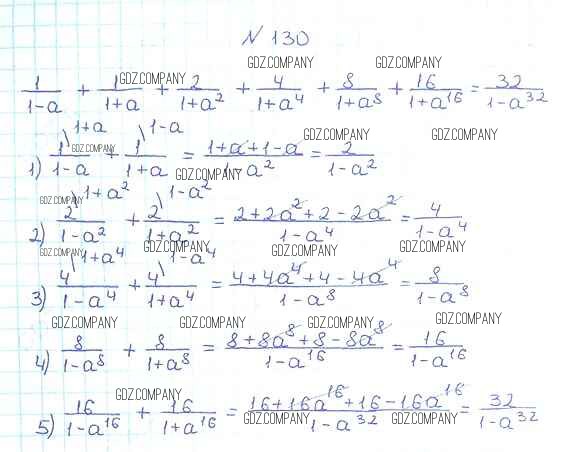 N 130
GDZ.COMPANY GDZ.COMPANY
1/(1-a) + 1/(1+a) + 2/(1+a²) + 4/(1+a⁴) + 8/(1+a⁸) + 16/(1+a¹⁶) = 32/(1-a³²)
GDZ.COMPANY
GDZ.COMPANY GDZ.COMPANY
1) 1\1+a/(1-a) + 1\1-a/(1+a) = (1+a+1-a)/(1-a²) = 2/(1-a²)
GDZ.COMPANY GDZ.COMPANY
GDZ.COMPANY
2) 2\1+a²/(1-a²) + 2\1-a²/(1+a²) = (2+2a²+2-2a²)/(1-a⁴) = 4/(1-a⁴)
GDZ.COMPANY GDZ.COMPANY GDZ.COMPANY GDZ.COMPANY
3) 4\1+a⁴/(1-a⁴) + 4\1-a⁴/(1+a⁴) = (4+4a⁴+4-4a⁴)/(1-a⁸) = 8/(1-a⁸)
GDZ.COMPANY GDZ.COMPANY GDZ.COMPANY GDZ.COMPANY
4) 8/(1-a⁸) + 8/(1+a⁸) = (8+8a⁸+8-8a⁸)/(1-a¹⁶) = 16/(1-a¹⁶)
GDZ.COMPANY
5) 16/(1-a¹⁶) + 16/(1+a¹⁶) = (16+16a¹⁶+16-16a¹⁶)/(1-a³²) = 32/(1-a³²)
GDZ.COMPANY GDZ.COMPANY